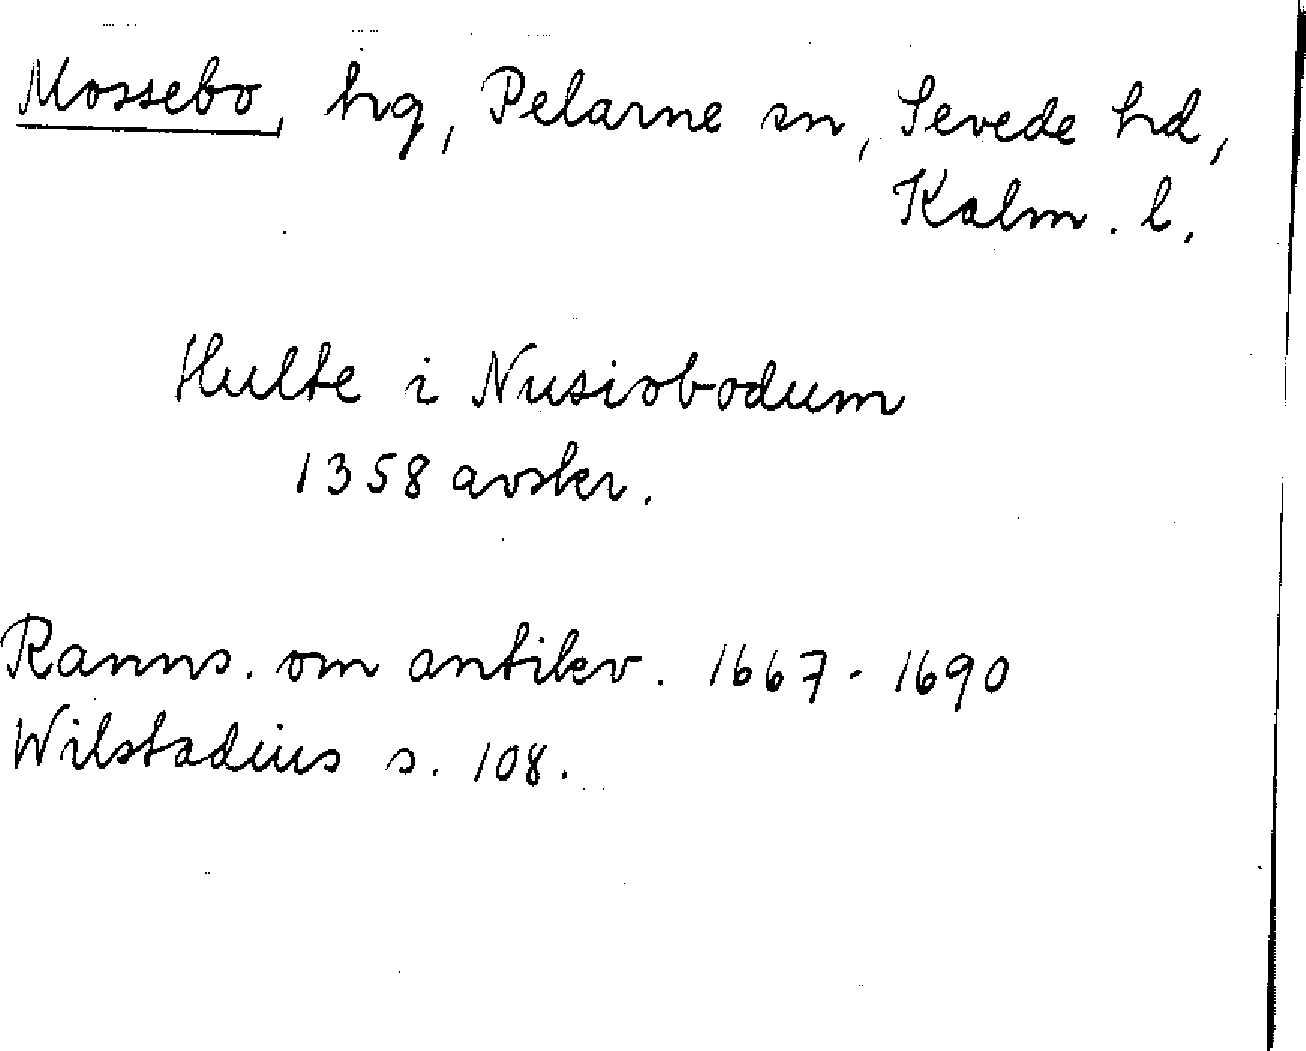 Mossebo, hg, Pelarne sn, Sevede hd,
Kalm. l.
Hulte i Nusiobodum
1358 avskr.
Ranns. om antikv. 1667-1690
Wilstadius s. 108.